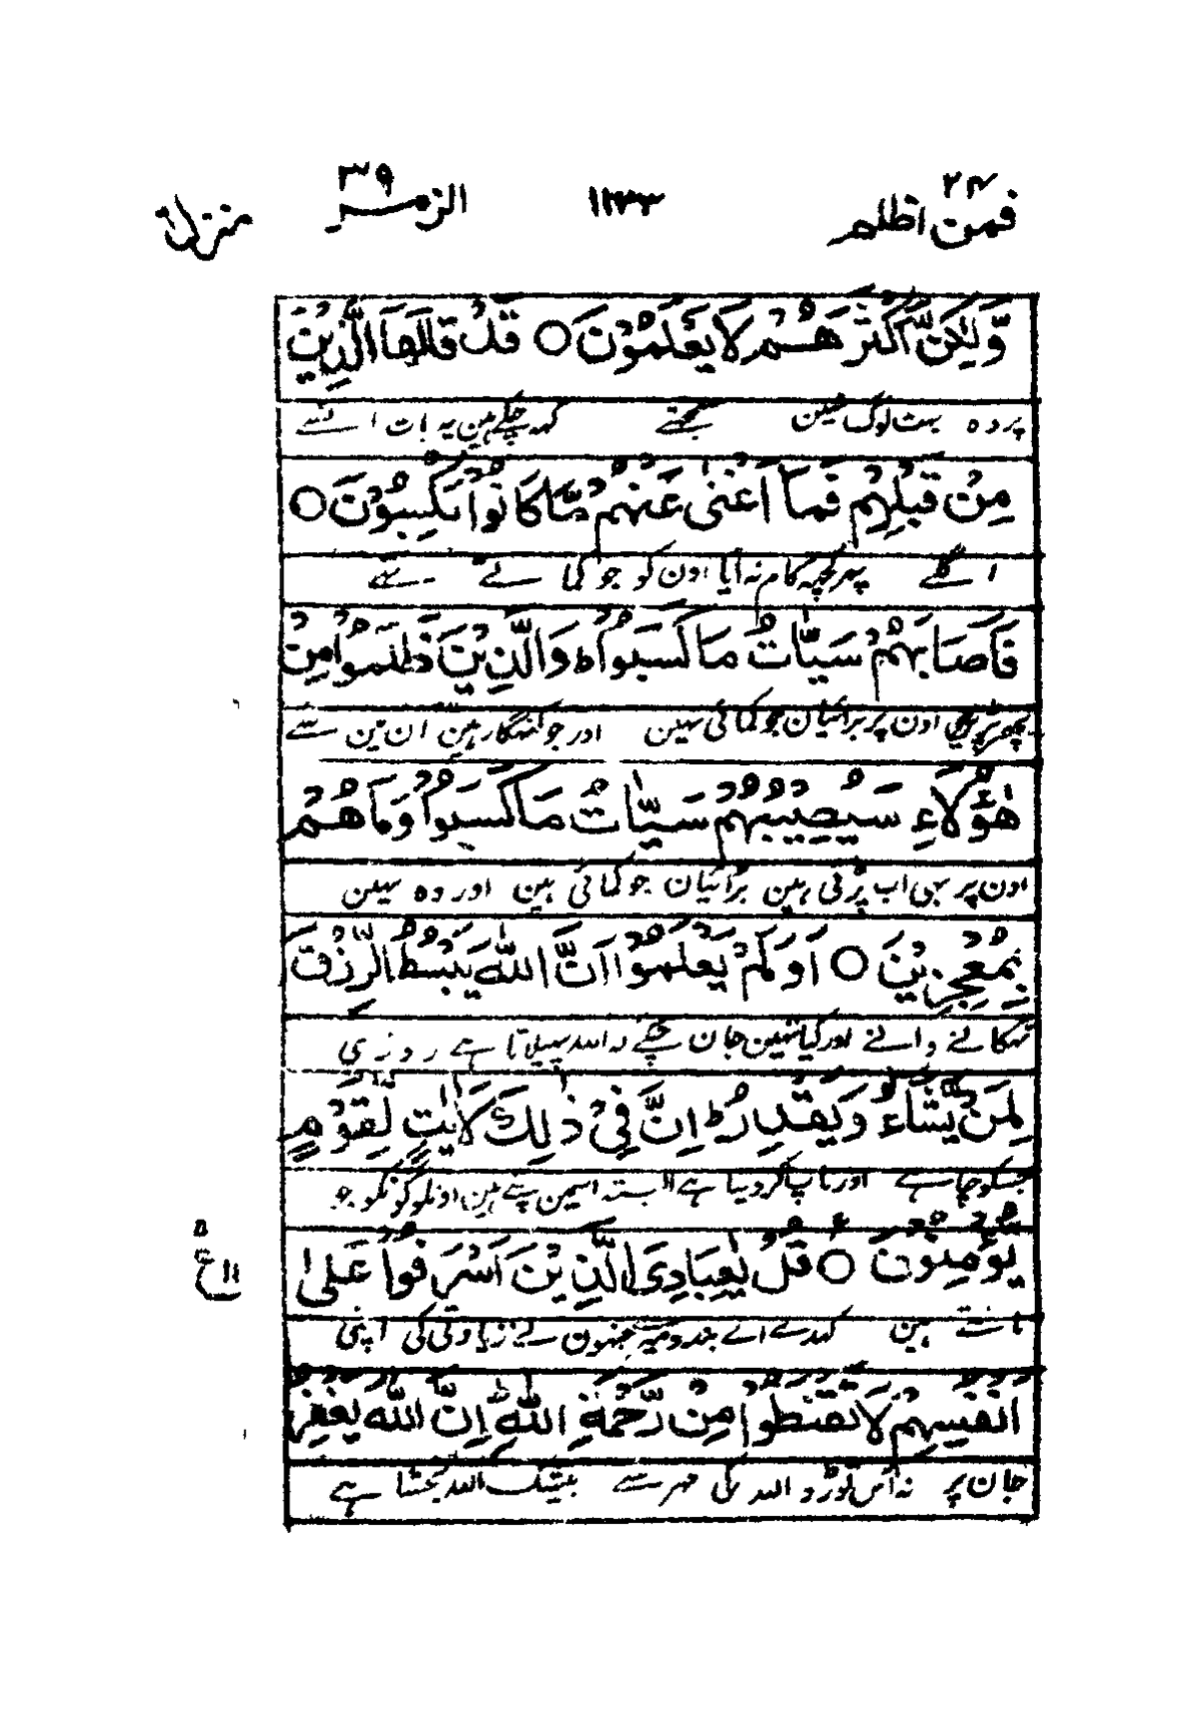 فمن اظلم ۲۴ ۱۱۳۳ الزمر ۳۹ منزل
وَّلٰكِنَّ اَكْثَرَهُمْ لَا يَعْلَمُوْنَ ○ قَدْ قَالَهَا الَّذِيْنَ
پر وہ بہت لوگ نہین سمجھتے کہہ چکے ہین یہ بات ان سے
مِنْ قَبْلِهِمْ فَمَاۤ اَغْنٰى عَنْهُمْ مَّا كَانُوْا يَكْسِبُوْنَ ○
اگلے پہر کچھہ کام نہ آیا اون کو جو کماتے تھے
فَاَصَابَهُمْ سَيِّاٰتُ مَا كَسَبُوْا ؕ وَالَّذِيْنَ ظَلَمُوْا مِنْ
پھر پڑی اون پر برائیان جو کمائی تہین اور جو گنہگار ہین ان مین سے
هٰٓؤُلَآءِ سَيُصِيْبُهُمْ سَيِّاٰتُ مَا كَسَبُوْا وَمَا هُمْ
اون پر بہی اب پڑتی ہین برائیان جو کمائی ہین اور وہ نہین
بِمُعْجِزِيْنَ ○ اَوَلَمْ يَعْلَمُوْۤا اَنَّ اللّٰهَ يَبْسُطُ الرِّزْقَ
تہکانے والے اور کیا نہین جان چکے کہ اللہ پہیلاتا ہے روزی
لِمَنْ يَّشَآءُ وَيَقْدِرُ ؕ اِنَّ فِيْ ذٰلِكَ لَاٰيٰتٍ لِّقَوْمٍ
جسکو چاہے اور ناپ کر دیتا ہے البتہ اسمین پتے ہین اون لوگونکو جو
يُّؤْمِنُوْنَ ○ قُلْ يٰعِبَادِيَ الَّذِيْنَ اَسْرَفُوْا عَلٰٓى
۵ ع ۱۱
مانتے ہین کہدے اے بندو میرے جنہون نے زیادتی کی اپنی
اَنْفُسِهِمْ لَا تَقْنَطُوْا مِنْ رَّحْمَةِ اللّٰهِ اِنَّ اللّٰهَ يَغْفِرُ
جان پر نہ آس توڑو اللہ کی مہر سے بیشک اللہ بخشتا ہے